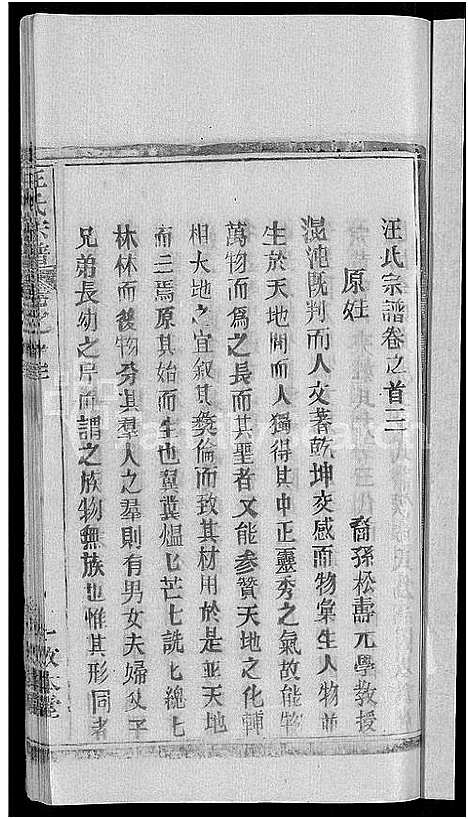 汪氏宗譜卷之首三
原姓
裔孫松壽元學教授
混沌既判而人文著乾坤交感而物彙生人物並
生於天地間而人獨得其中正靈秀之氣故能物
萬物而爲之長而其聖者又能參贊天地之化輔
相大地之宜叙其彝倫而致其材用於是並天地
而三焉原其始而生也
林林而後物夯其羣人之羣則有男女夫婦父子
兄弟長幼之序而謂之族物無族也惟其形同者
汪氏宗譜